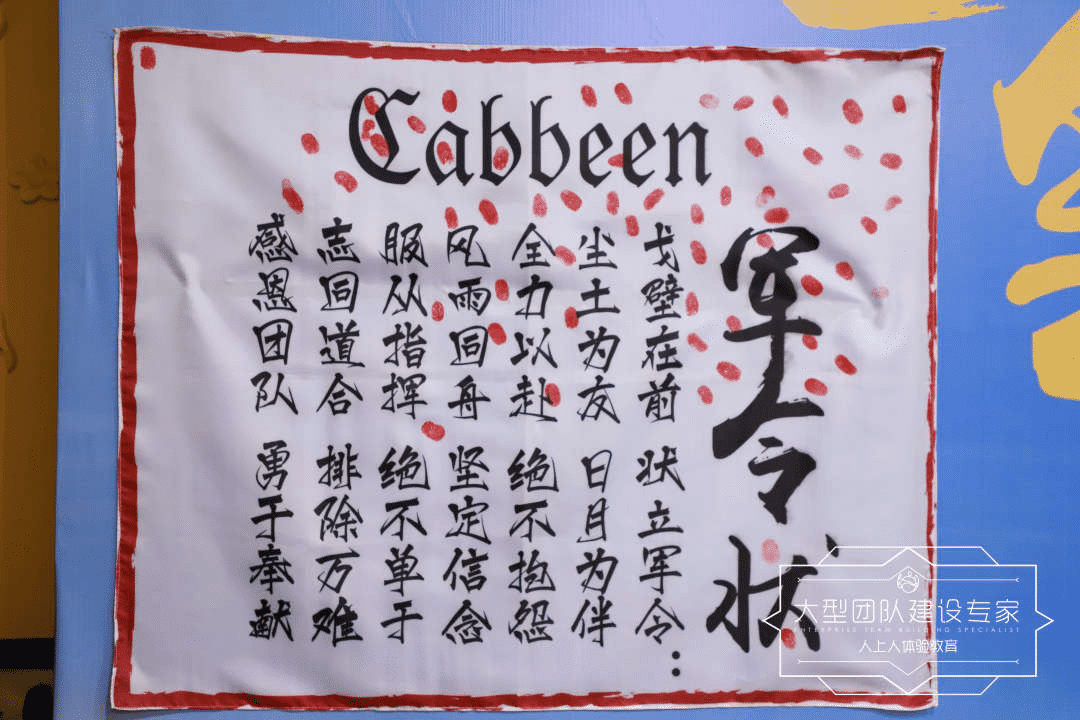 Cabbeen
军令状
戈壁在前 状立军令：
尘土为友 日月为伴
全力以赴 绝不抱怨
风雨同舟 坚定信念
服从指挥 绝不单于
志同道合 排除万难
感恩团队 勇于奉献
大型团队建设专家
ENTERPRISE TEAM BUILDING SPECIALIST
人上人体验教育